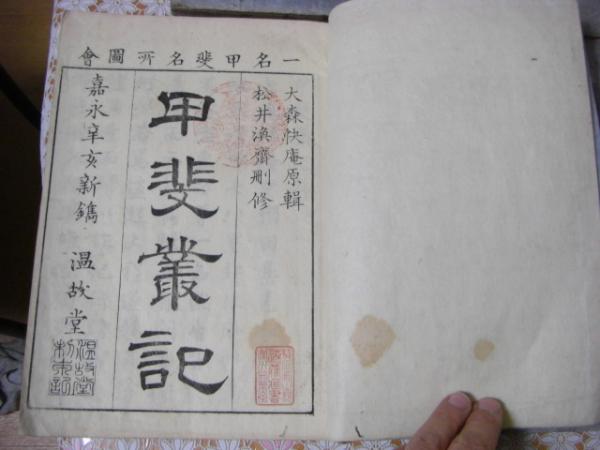 一名甲斐名所圖會
大森快庵原輯
松井渙齋刪修
甲斐叢記
嘉永辛亥新鐫 温故堂